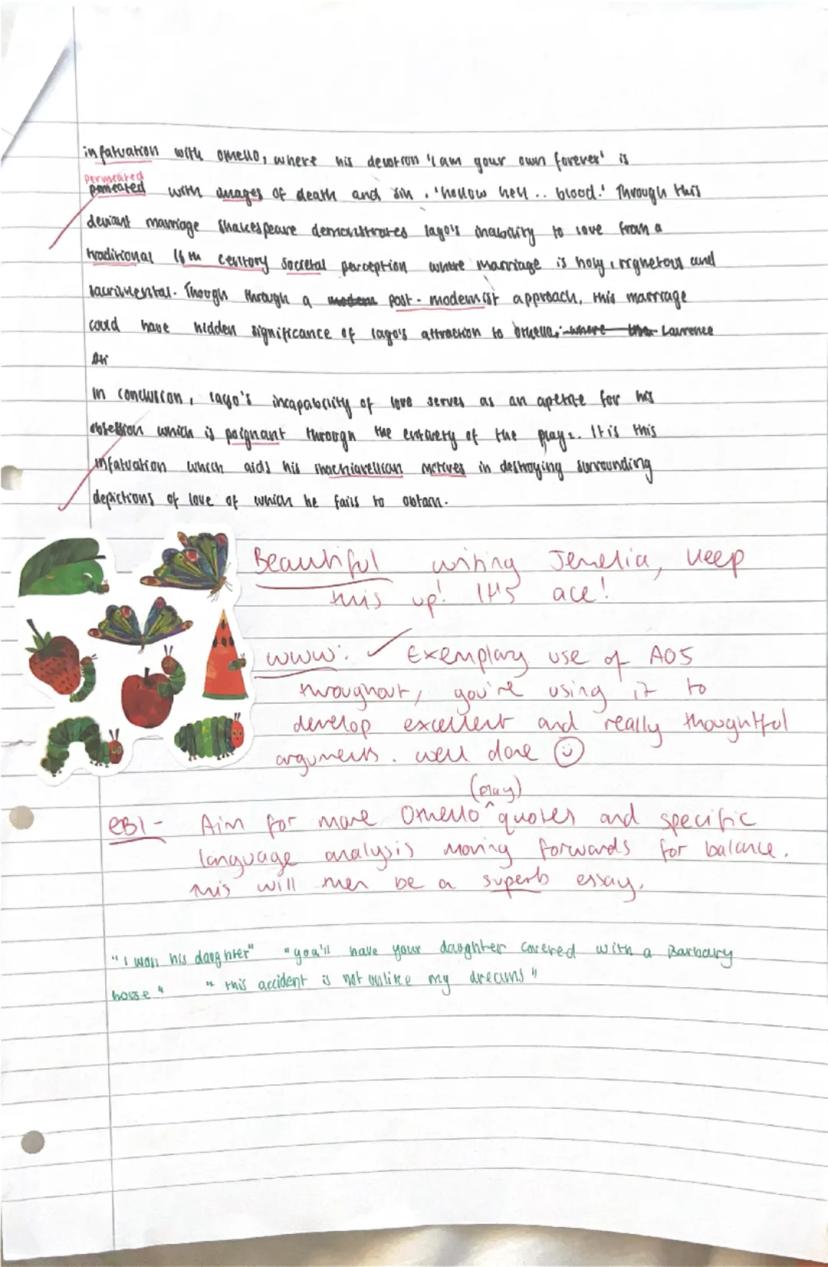 infatuation with Othello, where his devotion 'I am your own forever' is
permeated
with images of death and sin. 'hollow hell.. blood.' Through this
deviant marriage Shakespeare demonstrates Iago's inability to love from a
traditional 16th century societal perception where marriage is holy, righteous and
sacrimental. Though through a modern post-modernist approach, this marriage
could have hidden significance of Iago's attraction to Othello, where the Laurence
In conclusion, Iago's incapability of love serves as an for his
obsession which is poignant through the entirety of the play. It is this
infatuation which aids his machiavellian motives in destroying surrounding
depictions of love of which he fails to obtain.
Beautiful writing Jemelia, keep
this up! It's ace!
WWW: ✓ Exemplary use of AO5
throughout, you're using it to
develop excellent and really thoughtful
arguments. Well done ☺
(play)
EBI - Aim for more Othello ^ quotes and specific
language analysis moving forwards for balance.
This will then be a superb essay.
"I won his daughter" "you'll have your daughter covered with a Barbary
horse" "this accident is not unlike my dreams"